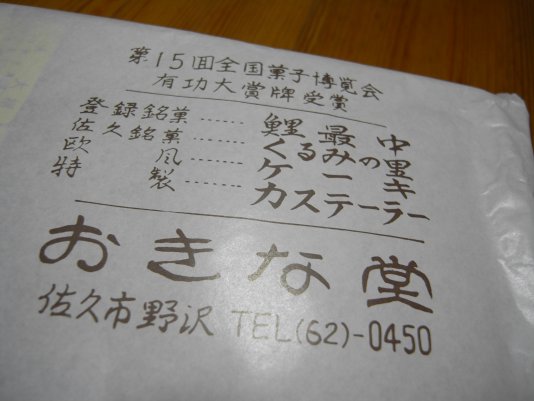 第15回全国菓子博覧会
有功大賞牌受賞
登録銘菓……鯉最中
佐久銘菓……くるみの里
欧風……ケーキ
特製……カステーラー
おきな堂
佐久市野沢 TEL(62)-0450